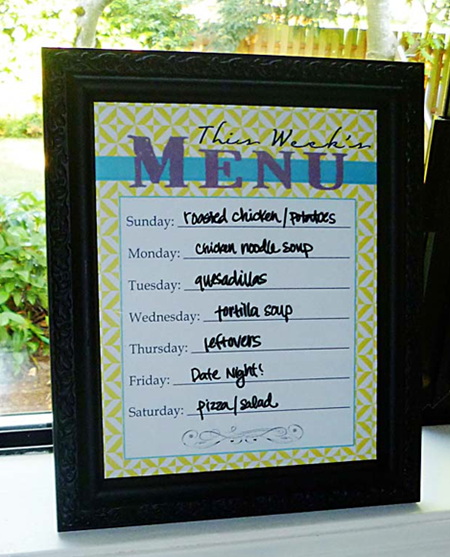 This Week's
MENU
Sunday: roasted chicken/potatoes
Monday: chicken noodle soup
Tuesday: quesadillas
Wednesday: tortilla soup
Thursday: leftovers
Friday: Date Night!
Saturday: pizza/salad